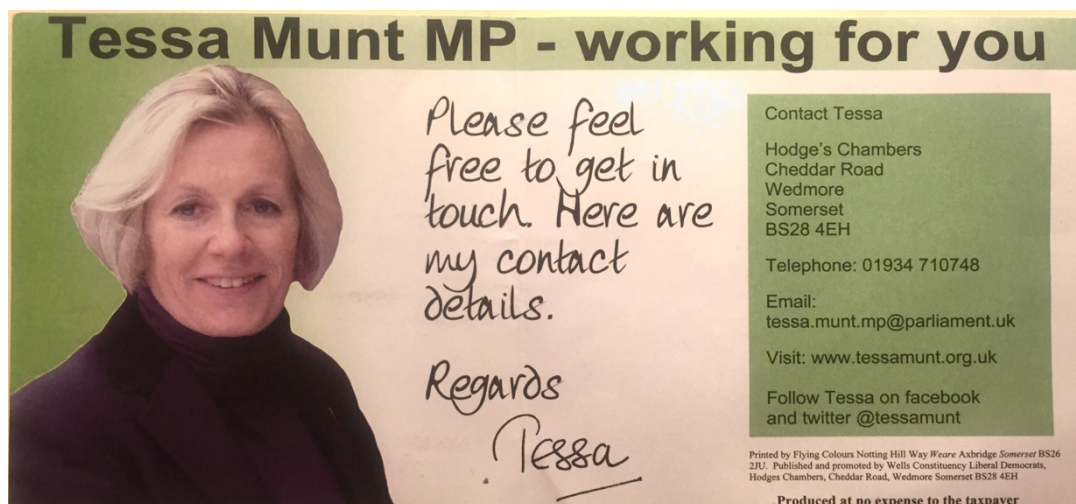 Tessa Munt MP - working for you
Please feel
free to get in
touch. Here are
my contact
details.
Regards
Tessa
Contact Tessa
Hodge's Chambers
Cheddar Road
Wedmore
Somerset
BS28 4EH
Telephone: 01934 710748
Email:
tessa.munt.mp@parliament.uk
Visit: www.tessamunt.org.uk
Follow Tessa on facebook
and twitter @tessamunt
Printed by Flying Colours Notting Hill Way Weare Axbridge Somerset BS26
2JU. Published and promoted by Wells Constituency Liberal Democrats,
Hodges Chambers, Cheddar Road, Wedmore Somerset BS28 4EH
Produced at no expense to the taxpayer